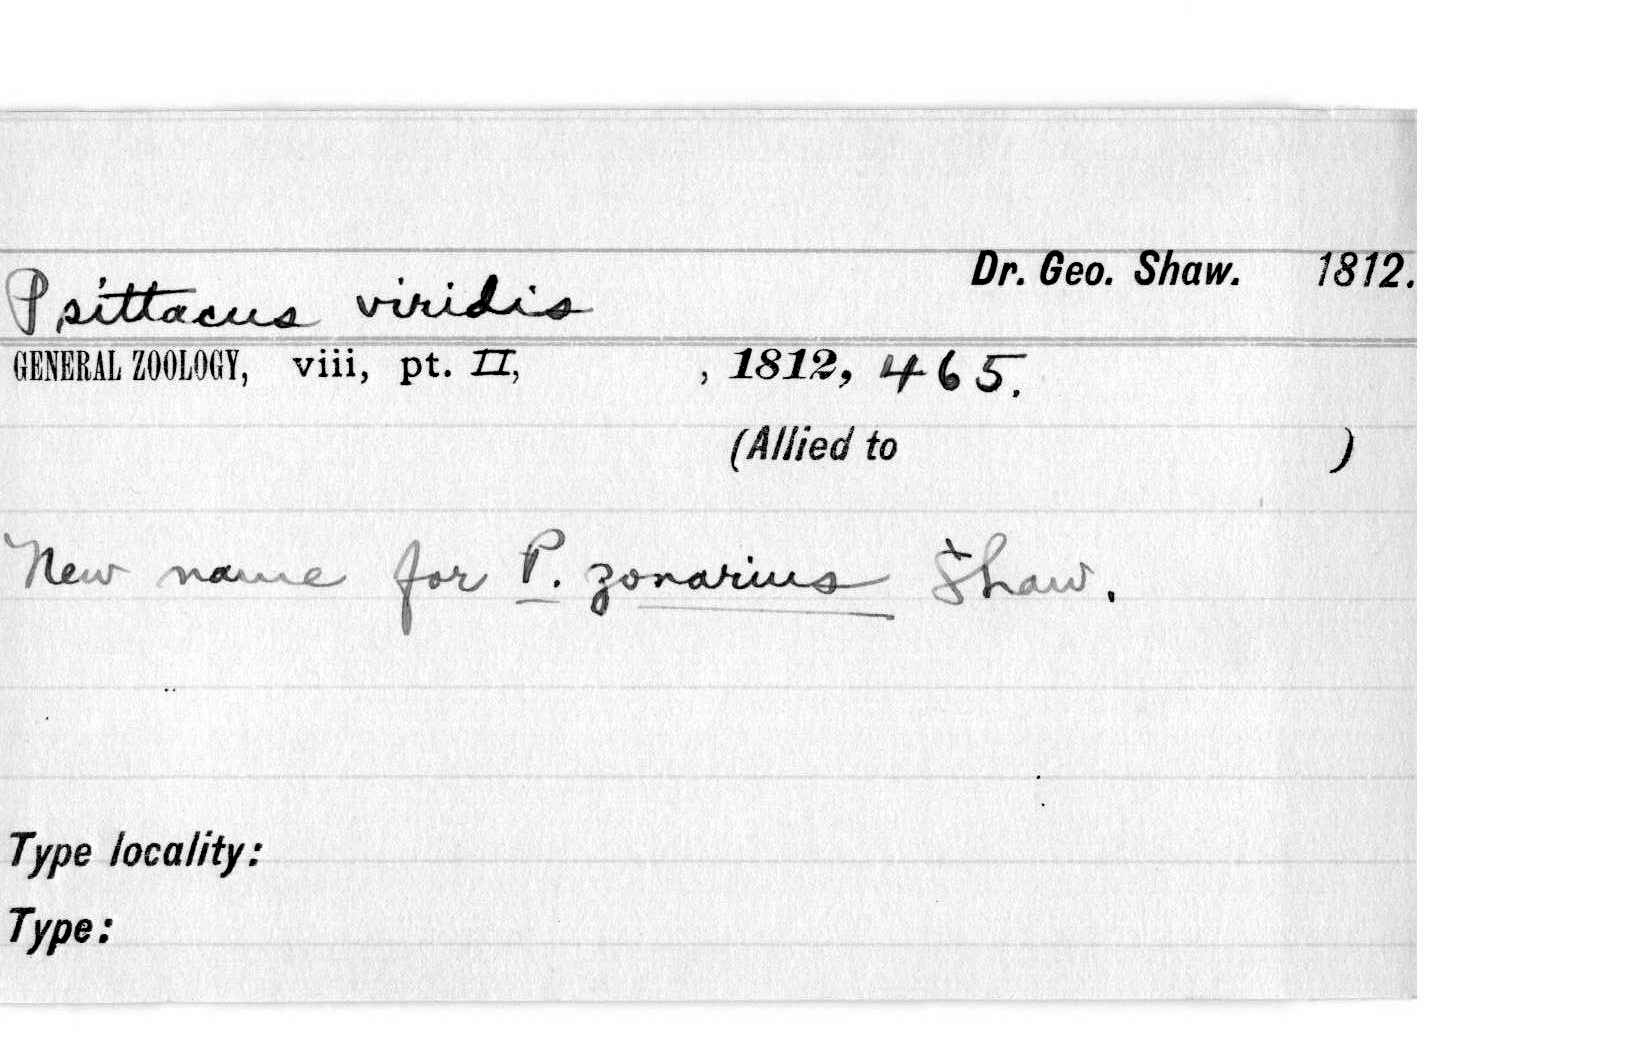 Dr. Geo. Shaw. 1812.
Psittacus viridis
GENERAL ZOOLOGY, viii, pt. II, , 1812, 465.
(Allied to )
New name for P. zonarius Shaw.
Type locality:
Type: